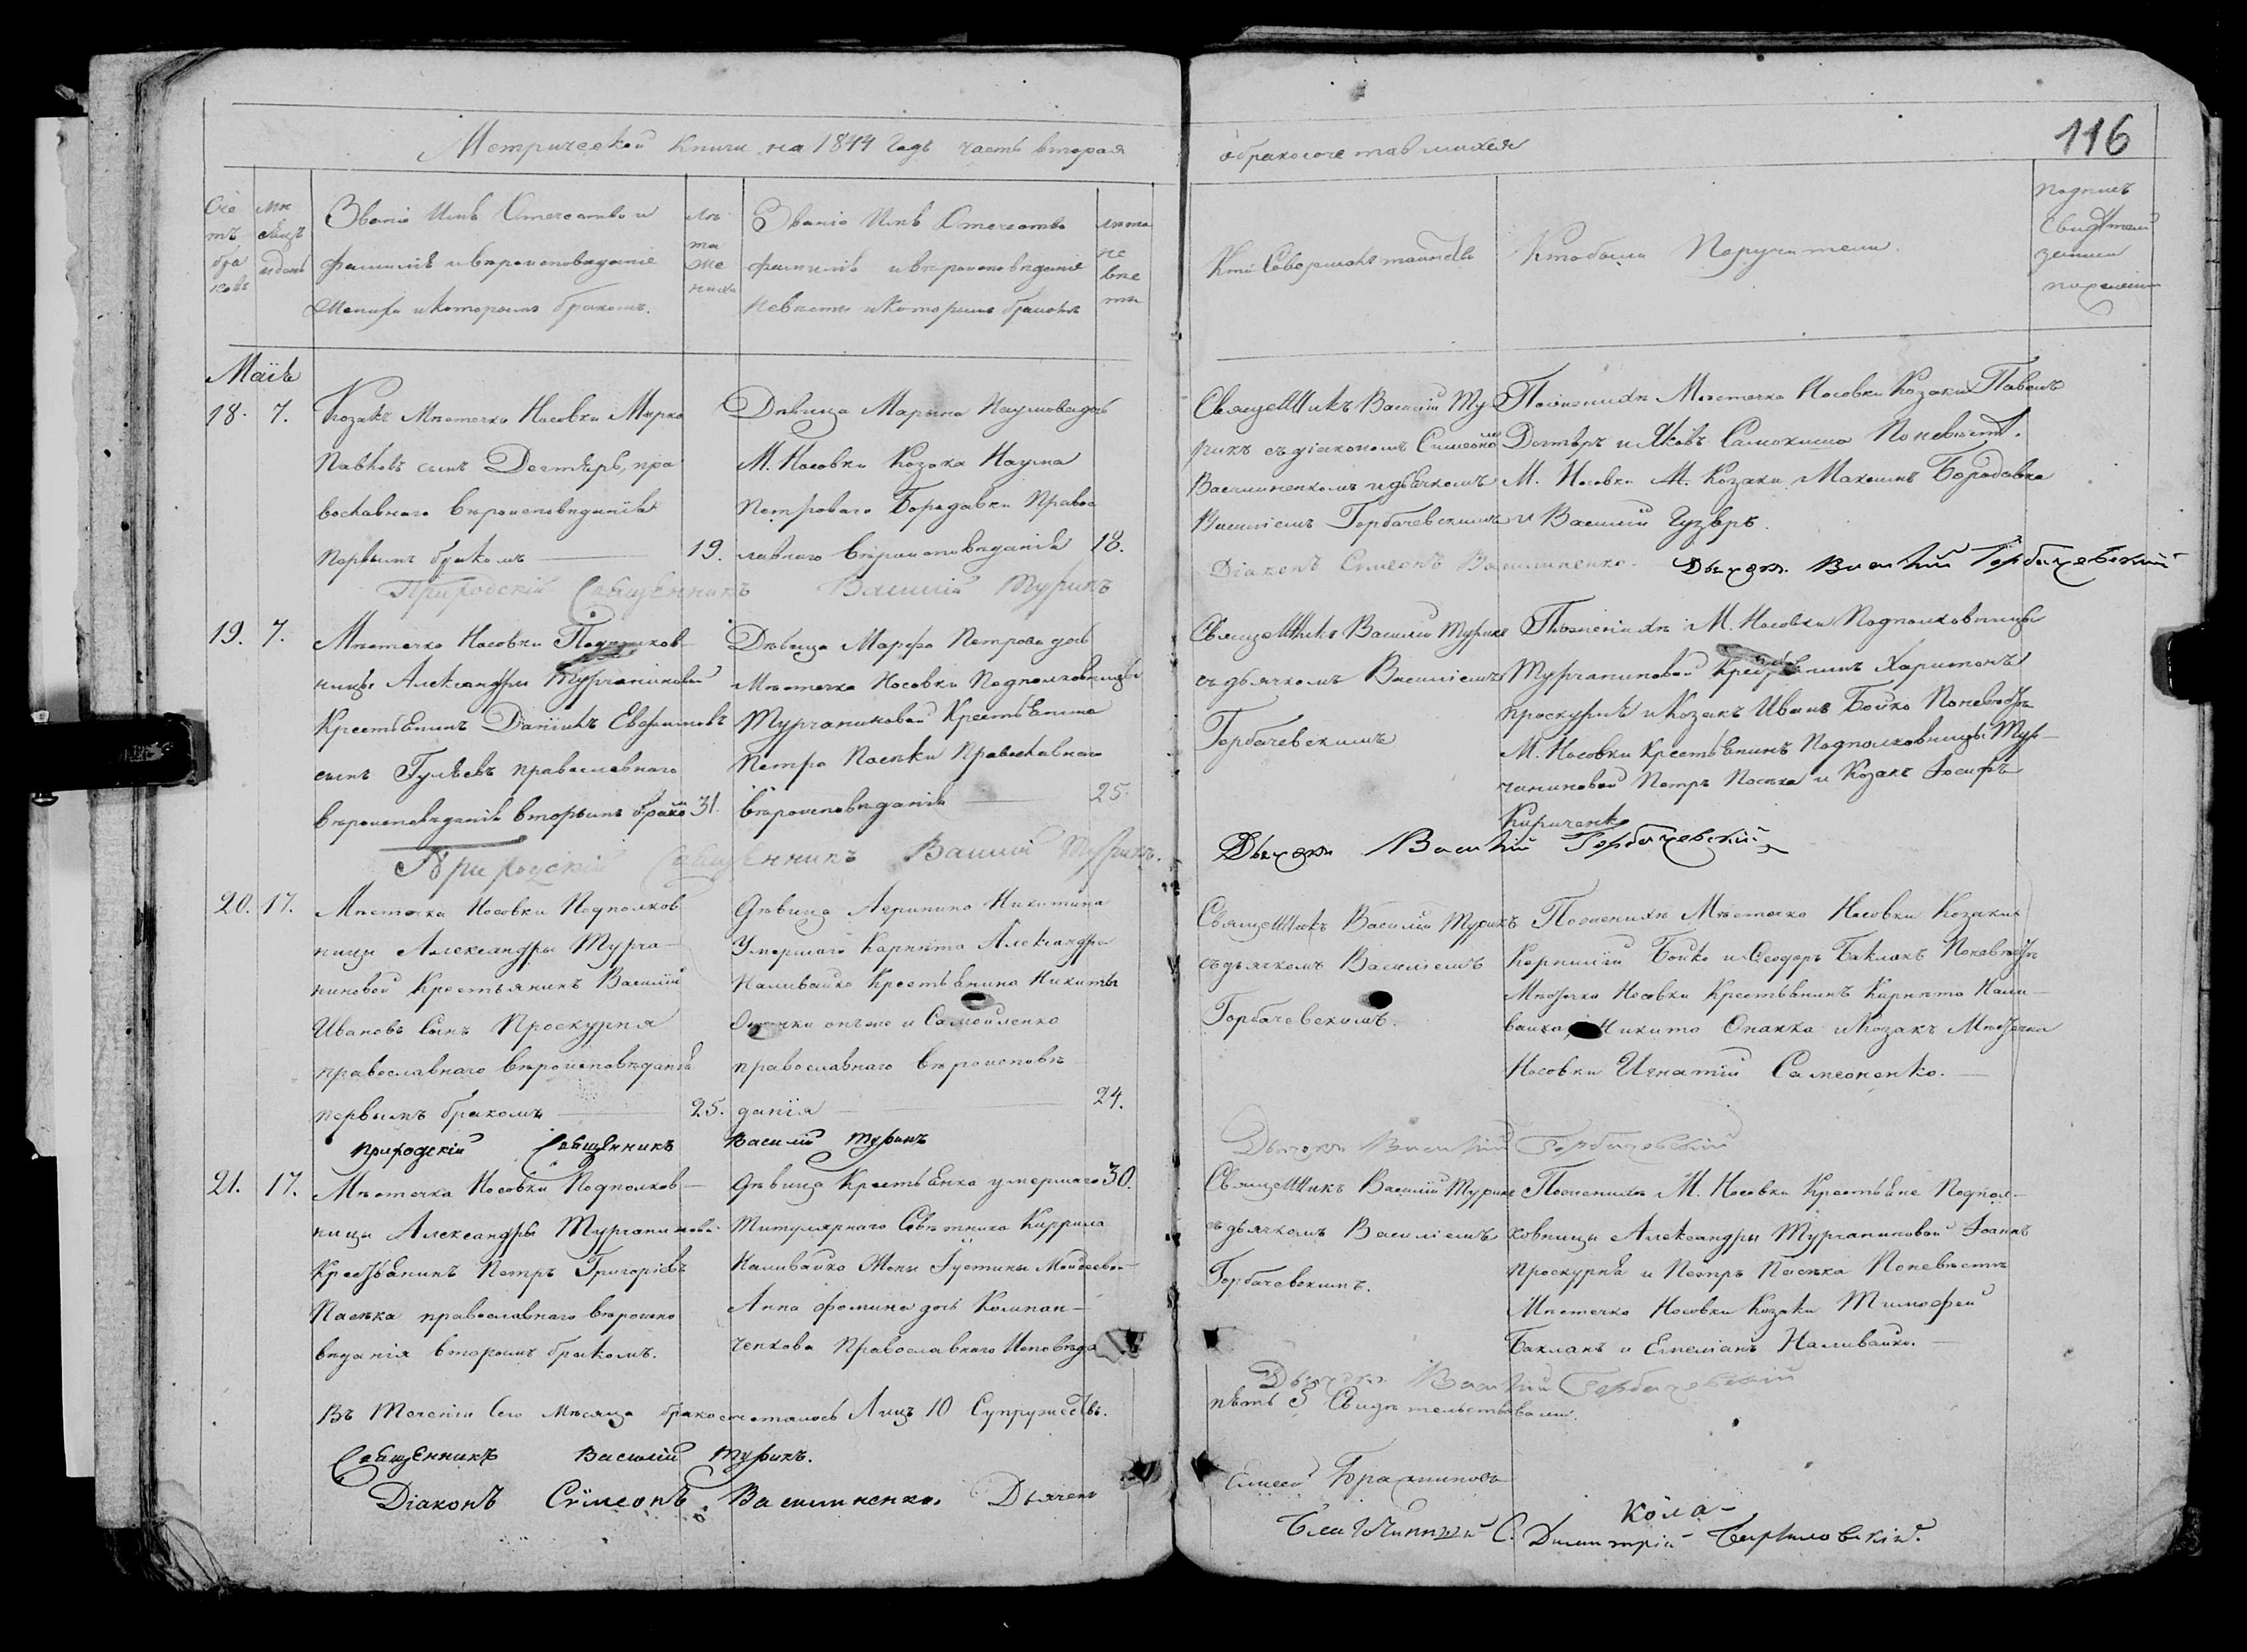 Метрической книги на 1844 годъ часть вторая
о бракосочетавшихся
116
Сче
тъ
бра
ковъ
Мѣ
сяцъ
и день
Званіе Имѣ Отечество и
фамилія и вѣроисповѣданіе
Жениха и которымъ бракомъ.
Лѣ
та
же
ниха
Званіе Имѣ Отечество
фамилія и вѣроисповѣданіе
Невѣсты и которымъ бракомъ
лѣта
не
вѣс
ты
Кто Совершалъ таинство
Кто были Поручители.
подписъ
свидѣтелей
записи
по желанію
Маіъ
18. 7.
Козакъ Мѣстечка Носовки Марко
Павловъ сынъ Дегтяръ, пра
вославнаго вѣроисповѣданія
первымъ бракомъ 19.
Дѣвица Марина Наумова дочь
М. Носовки Козака Наума
Петроваго Бородавки Правос
лавнаго вѣроисповѣданія 18.
Священникъ Василій Ту
рикъ съ діакономъ Симеоно
Василиненкомъ и дьячкомъ
Василіемъ Горбачевскимъ
По женихѣ Мѣстечка Носовки Козаки Павелъ
Дегтяръ и Яковъ Самокиша По невѣстѣ.
М. Носовки М. Козаки Максимъ Бородавка
и Василій Гузѣръ.
Приходскій Священникъ Василій Турикъ
Діаконъ Симеонъ Василиненко. Дьячокъ Василій Горбачевский
19. 7.
Мѣстечка Носовки Подполков
ницы Александры Турчаниновой
Крестьянинъ Даніилъ Евфимовъ
сынъ Гулѣевъ православнаго
вѣроисповѣданія вторымъ брако 31.
Дѣвица Марфа Петрова дочь
Мѣстечка Носовки Подполковницы
Турчаниновой Крестьянина
Петра Пасѣки Православнаго
вѣроисповѣданія 25.
Священникъ Василій Турикъ
съ дьячкомъ Василіемъ
Горбачевскимъ
По женихѣ М. Носовки Подполковницы
Турчаниновой Крестьянинъ Харитонъ
Проскурня и Козакъ Иванъ Бойко По невѣстѣ
М. Носовки Крестьянинъ Подполковницы Тур-
чаниновой Петръ Пасѣка и Козакъ Іосифъ
Кириченко
Приходскій Священникъ Василій Турикъ.
Дьячокъ Василій Горбачевский
20. 17.
Мѣстечка Носовки Подполков
ници Александры Турча-
ниновой Крестьянинъ Василій
Ивановъ Сынъ Проскурня
православнаго вѣроисповѣданія
первымъ бракомъ 25.
Дѣвица Агрипина Никитина
Умершаго Карнѣта Александра
Наливайко Крестьянина Никиты
и Самойленко
православнаго вѣроисповѣ
данія 24.
Священникъ Василій Турикъ
съ дьячкомъ Василіемъ
Горбачевскимъ.
По женихѣ Мѣстечка Носовки Козаки
Корнилій Бойко и Феодоръ Бакланъ По невѣстѣ
Мѣстечка Носовки Крестьянинъ Карнѣта Нали-
вайка, Никита Опанка и Козакъ Мѣстечка
Носовки Игнатій Самсоненко.
приходскій Священникъ Василій Турикъ
Дьячокъ Василій Горбачевский
21. 17.
Мѣстечка Носовки Подполков-
ницы Александры Турчаниновой
Крестьянинъ Петръ Григорієвъ
Пасѣка православнаго вѣроиспо
вѣданія вторымъ бракомъ.
Дѣвица Крестьянка умершаго 30.
Титулярнаго Совѣтника Киррила
Наливайко Жены Іустины Мойсеевой
Анна Фомина дочь Компан-
ченкова Православнаго Исповѣда
Священникъ Василій Турикъ
съ дьячкомъ Василіемъ
Горбачевскимъ.
По женихѣ М. Носовки Крестьяне Подпол-
ковницы Александры Турчаниновой Іоаннъ
Проскурня и Петръ Пасѣка По невѣстѣ
Мѣстечка Носовки Козаки Тимофей
Бакланъ и Емеліанъ Наливайко.
Дьячокъ Василій Горбачевский
Въ Теченіи Сего Мѣсяца бракосочеталось Лицъ 10 Супружествъ.
пять 5 Свидѣтельствовали.
Священникъ Василій Турикъ.
Діаконъ Сѵмеонъ Василиненко. Дьячекъ
Благочинный С. Димитрій